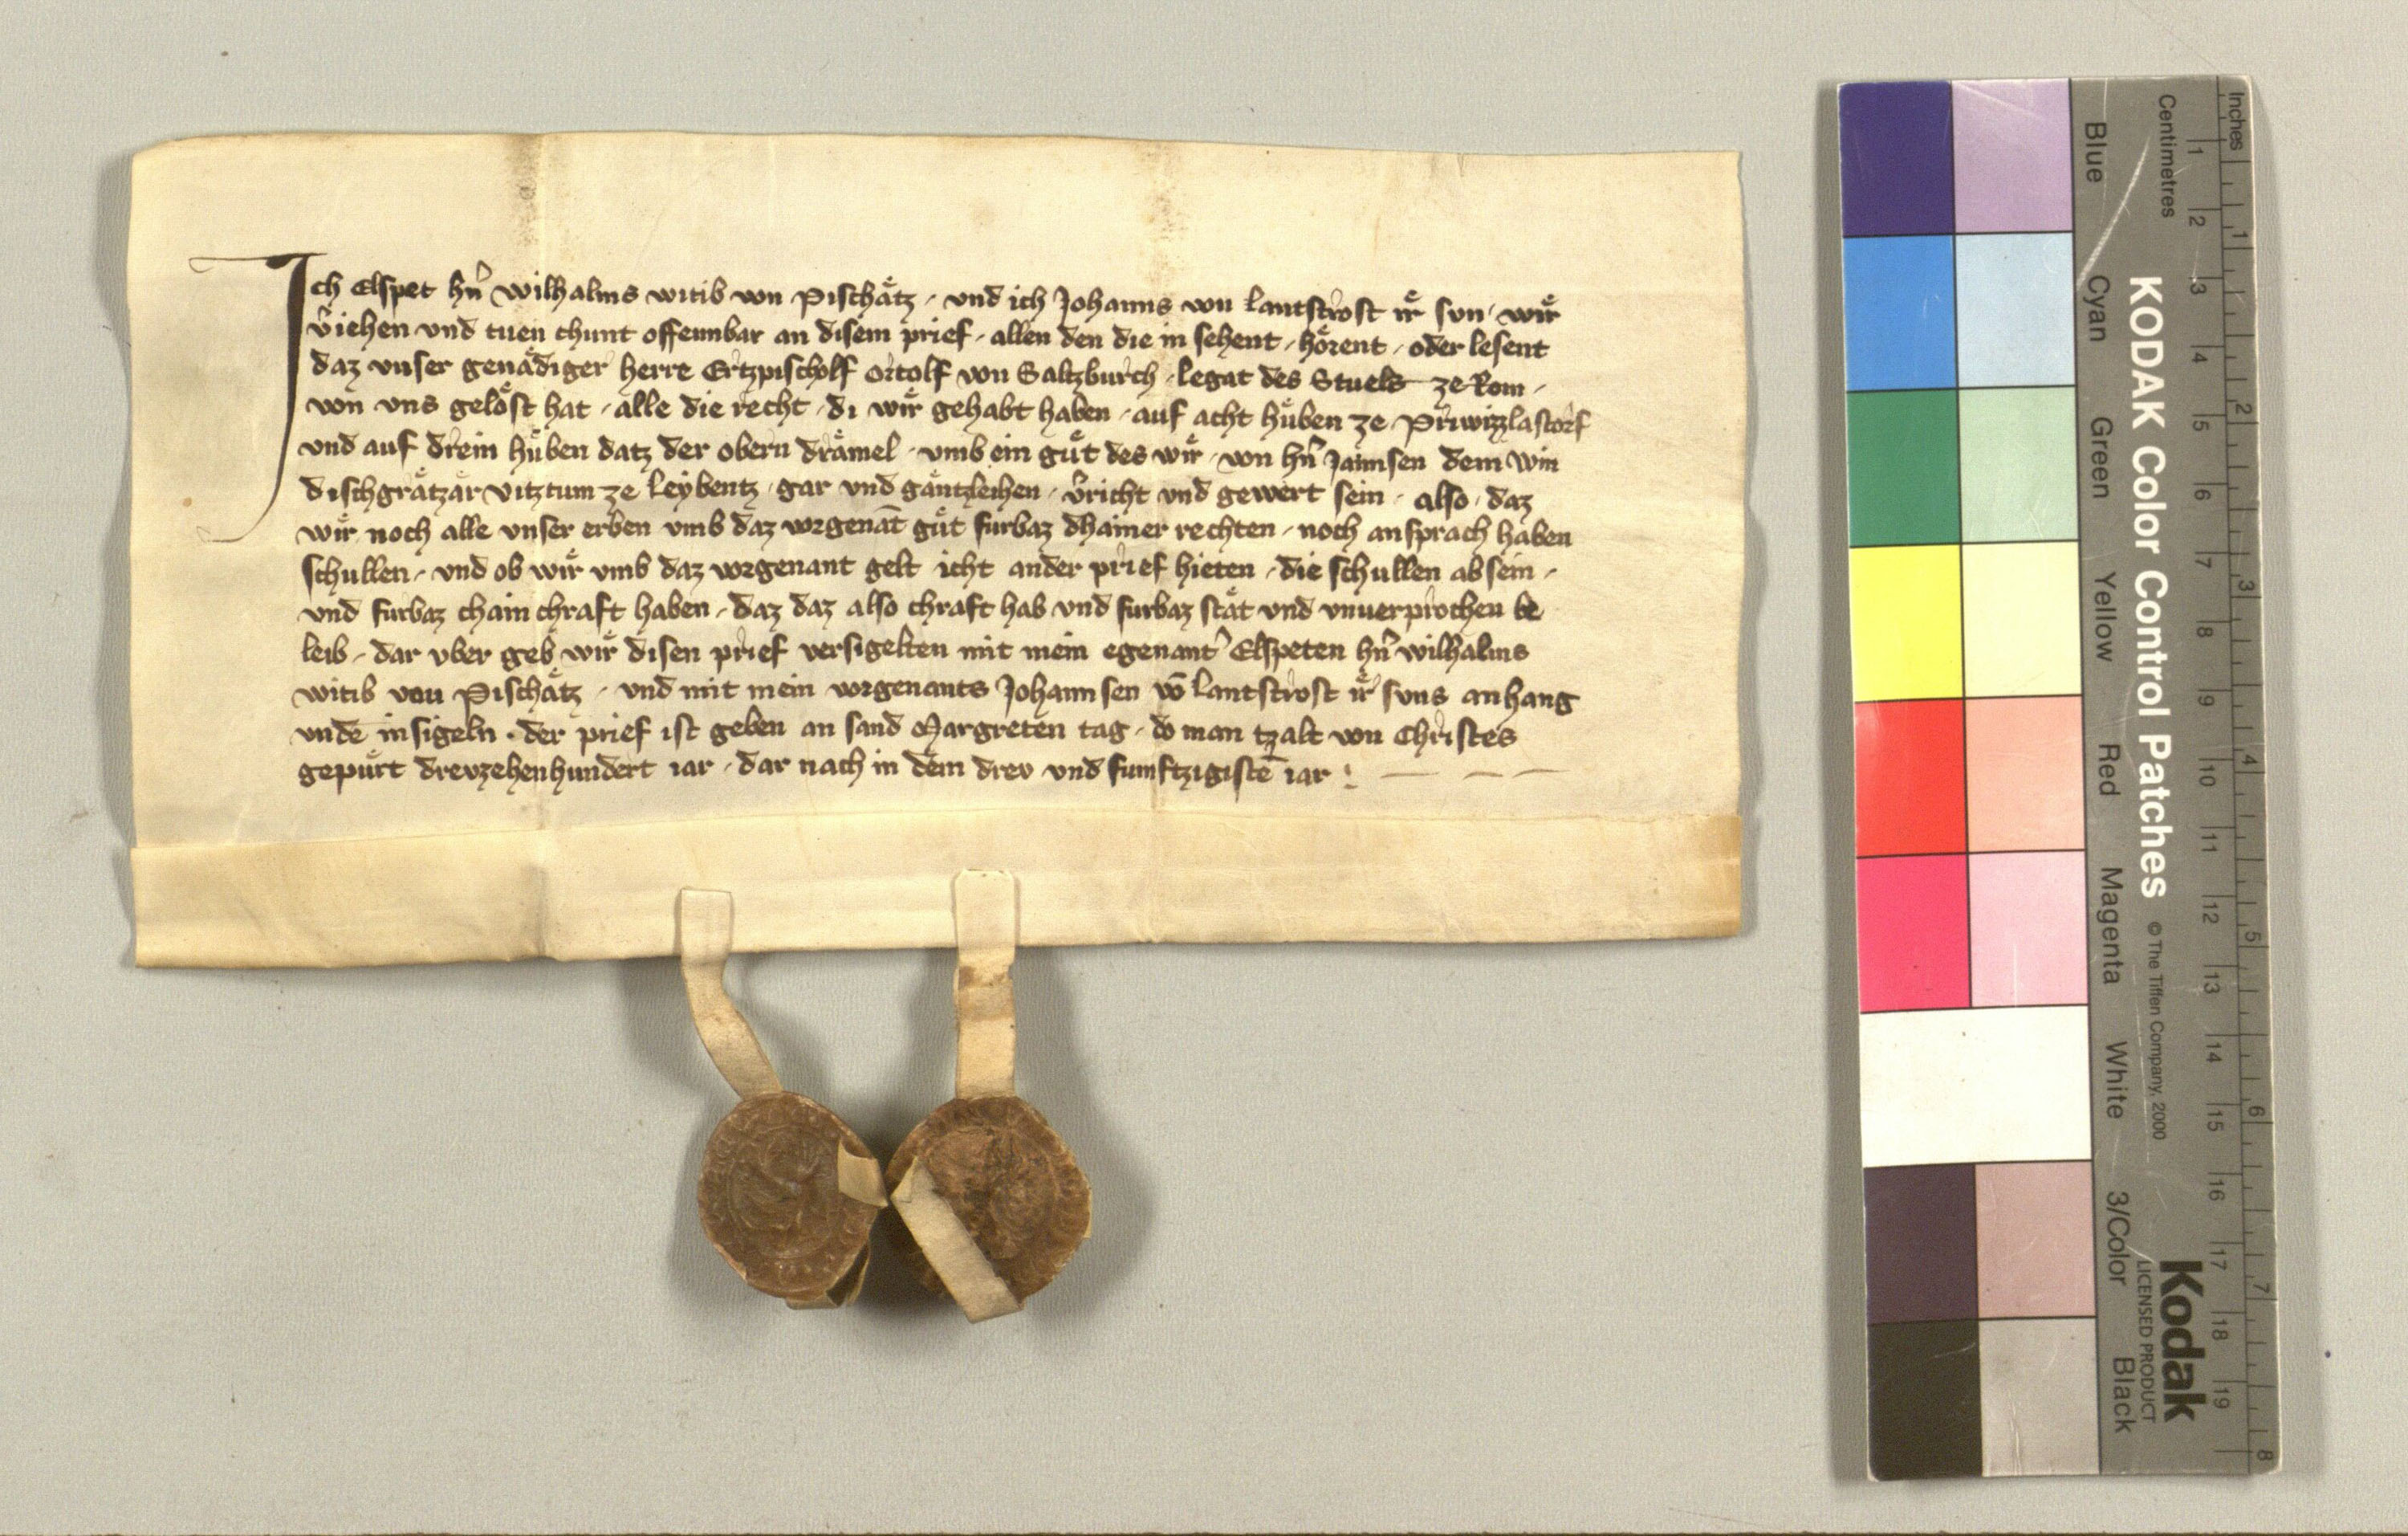 Ich Elspet hn̄ wilhalms witib von Pischaͤtz · und ich Johanns von Lantstrost iͤr sun · wiͤr
v̄iehen und tuen chunt offennbar an disem prief · allen den die in sehent · hoͤrent · oder lesent
daz vnser genaͤdiger herre Ertzpischolf Ortolf von Saltzburch · legat des Stuels ze Rom ·
von vns geloͤst hat · alle die recht · di wiͤr gehabt haben · auf acht huͤben ze Priwizzlastorf
und auf drein huͤben datz der obern draͤmel · vmb ein guͤt des wiͤr · von hn̄ Jannsen dem Win
dischgraͤtzaͤr vitztum ze Leybentz · gar vnd gaͤntzleihen · v̄richt vnd gewert sein · also · daz
wiͤr noch alle vnser erben vmb daz vorgenāt guͤt furbaz dhainer rechten · noch ansprach haben
schullen · vnd ob wiͤr vmb daz vorgenant gelt icht ander prief hieten · die schullen ab sein ·
vnd furbaz chain chraft haben · daz daz also chraft hab vnd furbaz staͤt vnd vnuerprochen be
leib · dar vber geb wiͤr disen prief versigelten mit mein egenant' Elspeten hn̄ wilhalms
witib von Pischaͤtz · vnd mit mein vorgenants Johannsen vō Lantstrost iͤr suns anhang
undē insigeln · der prief ist geben an sand Margreten tag · do man tzalt von Christes
gepuͤrt drevzehenhundert iar · dar nach in dem drev vnd funftzigistē iar :
KODAK Color Control Patches © The Tiffen Company, 2000
Kodak
LICENSED PRODUCT
Blue Cyan Green Yellow Red Magenta White 3/Color Black
Centimetres 1 2 3 4 5 6 7 8 9 10 11 12 13 14 15 16 17 18 19
Inches 1 2 3 4 5 6 7 8